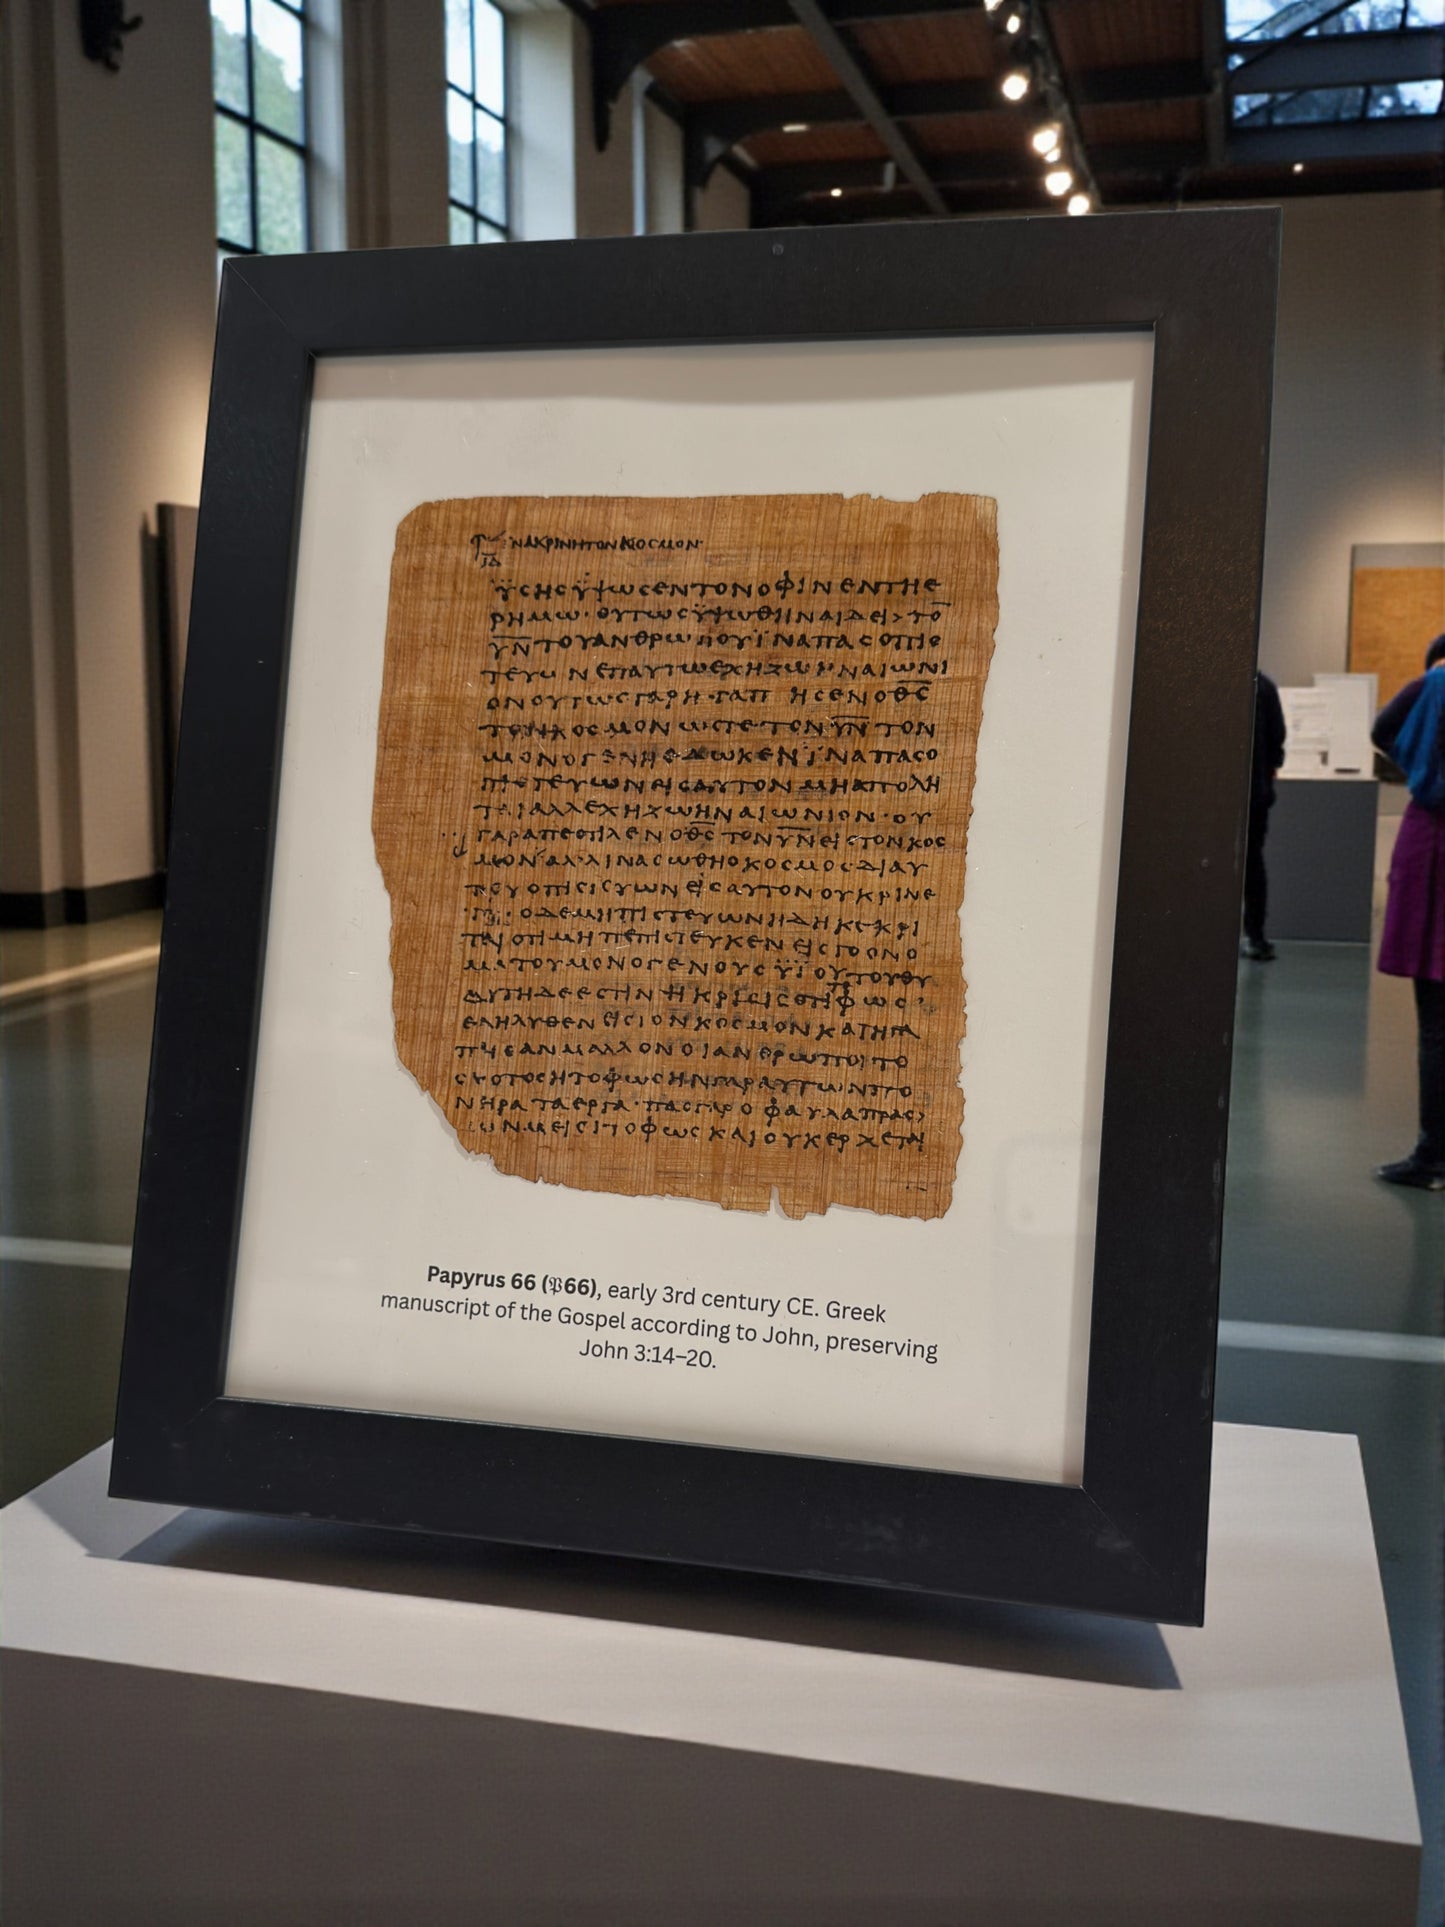 ΙΔ ΝΑΚΡΙΝΗΤΟΝΚΟСΜΟΝ·
ΫСΗСΫΨΩСΕΝΤΟΝΟΦΙΝΕΝΤΗΕ
ΡΗΜΩ·ΟΥΤΩСΫΨΩΘΗΝΑΙΔΕΙ>ΤΟ̅
Υ̅Ν̅ΤΟΥΑΝΘΡΩΠΟΥΪΝΑΠΑСΟΠΙС
ΤΕΥΩΝΕΠΑΥΤΩΕΧΗΖΩΗΝΑΙΩΝΙ
ΟΝΟΥΤΩСΓΑΡΗΓΑΠΗСΕΝΟΘ̅С̅
ΤΟΝΚΟСΜΟΝΩСΤΕΤΟΝΥ̅Ν̅ΤΟΝ
ΜΟΝΟΓΕΝΗΕΔΩΚΕΝΪΝΑΠΑСΟ
ΠΙСΤΕΥΩΝΕΙСΑΥΤΟΝΜΗΑΠΟΛΗ
ΤΑΙΑΛΛΕΧΗΖΩΗΝΑΙΩΝΙΟΝ·ΟΥ
ΓΑΡΑΠΕСΤΙΛΕΝΟΘ̅С̅ΤΟΝΥ̅Ν̅ΕΙСΤΟΝΚΟС
ΜΟΝ ΑΛΛΙΝΑСΩΘΗΟΚΟСΜΟСΔΙΑΥ
ΤΟΥΟΠΙСΤΕΥΩΝΕΙСΑΥΤΟΝΟΥΚΡΙΝΕ
ΤΑΙ·ΟΔΕΜΗΠΙСΤΕΥΩΝΗΔΗΚΕΚΡΙ
ΤΑΙΟΤΙΜΗΠΕΠΙСΤΕΥΚΕΝΕΙСΤΟΟΝΟ
ΜΑΤΟΥΜΟΝΟΓΕΝΟΥСΫΪΟΥΤΟΥΘΥ
ΑΥΤΗΔΕΕСΤΙΝΗΚΡΙСΙСΟΤΙΤΟΦΩС
ΕΛΗΛΥΘΕΝΕΙСΤΟΝΚΟСΜΟΝΚΑΙΗΓΑ
ΠΗСΑΝΜΑΛΛΟΝΟΙΑΝΘΡΩΠΟΙΤΟ
СΚΟΤΟСΗΤΟΦΩСΗΝΓΑΡΑΥΤΩΝΠΟ
ΝΗΡΑΤΑΕΡΓΑ·ΠΑСΓΑΡΟΦΑΥΛΑΠΡΑС>
СΩΝΜΕΙСΙΤΟΦΩСΚΑΙΟΥΚΕΡΧΕΤΑΙ
Papyrus 66 (𝔓66), early 3rd century CE. Greek
manuscript of the Gospel according to John, preserving
John 3:14–20.